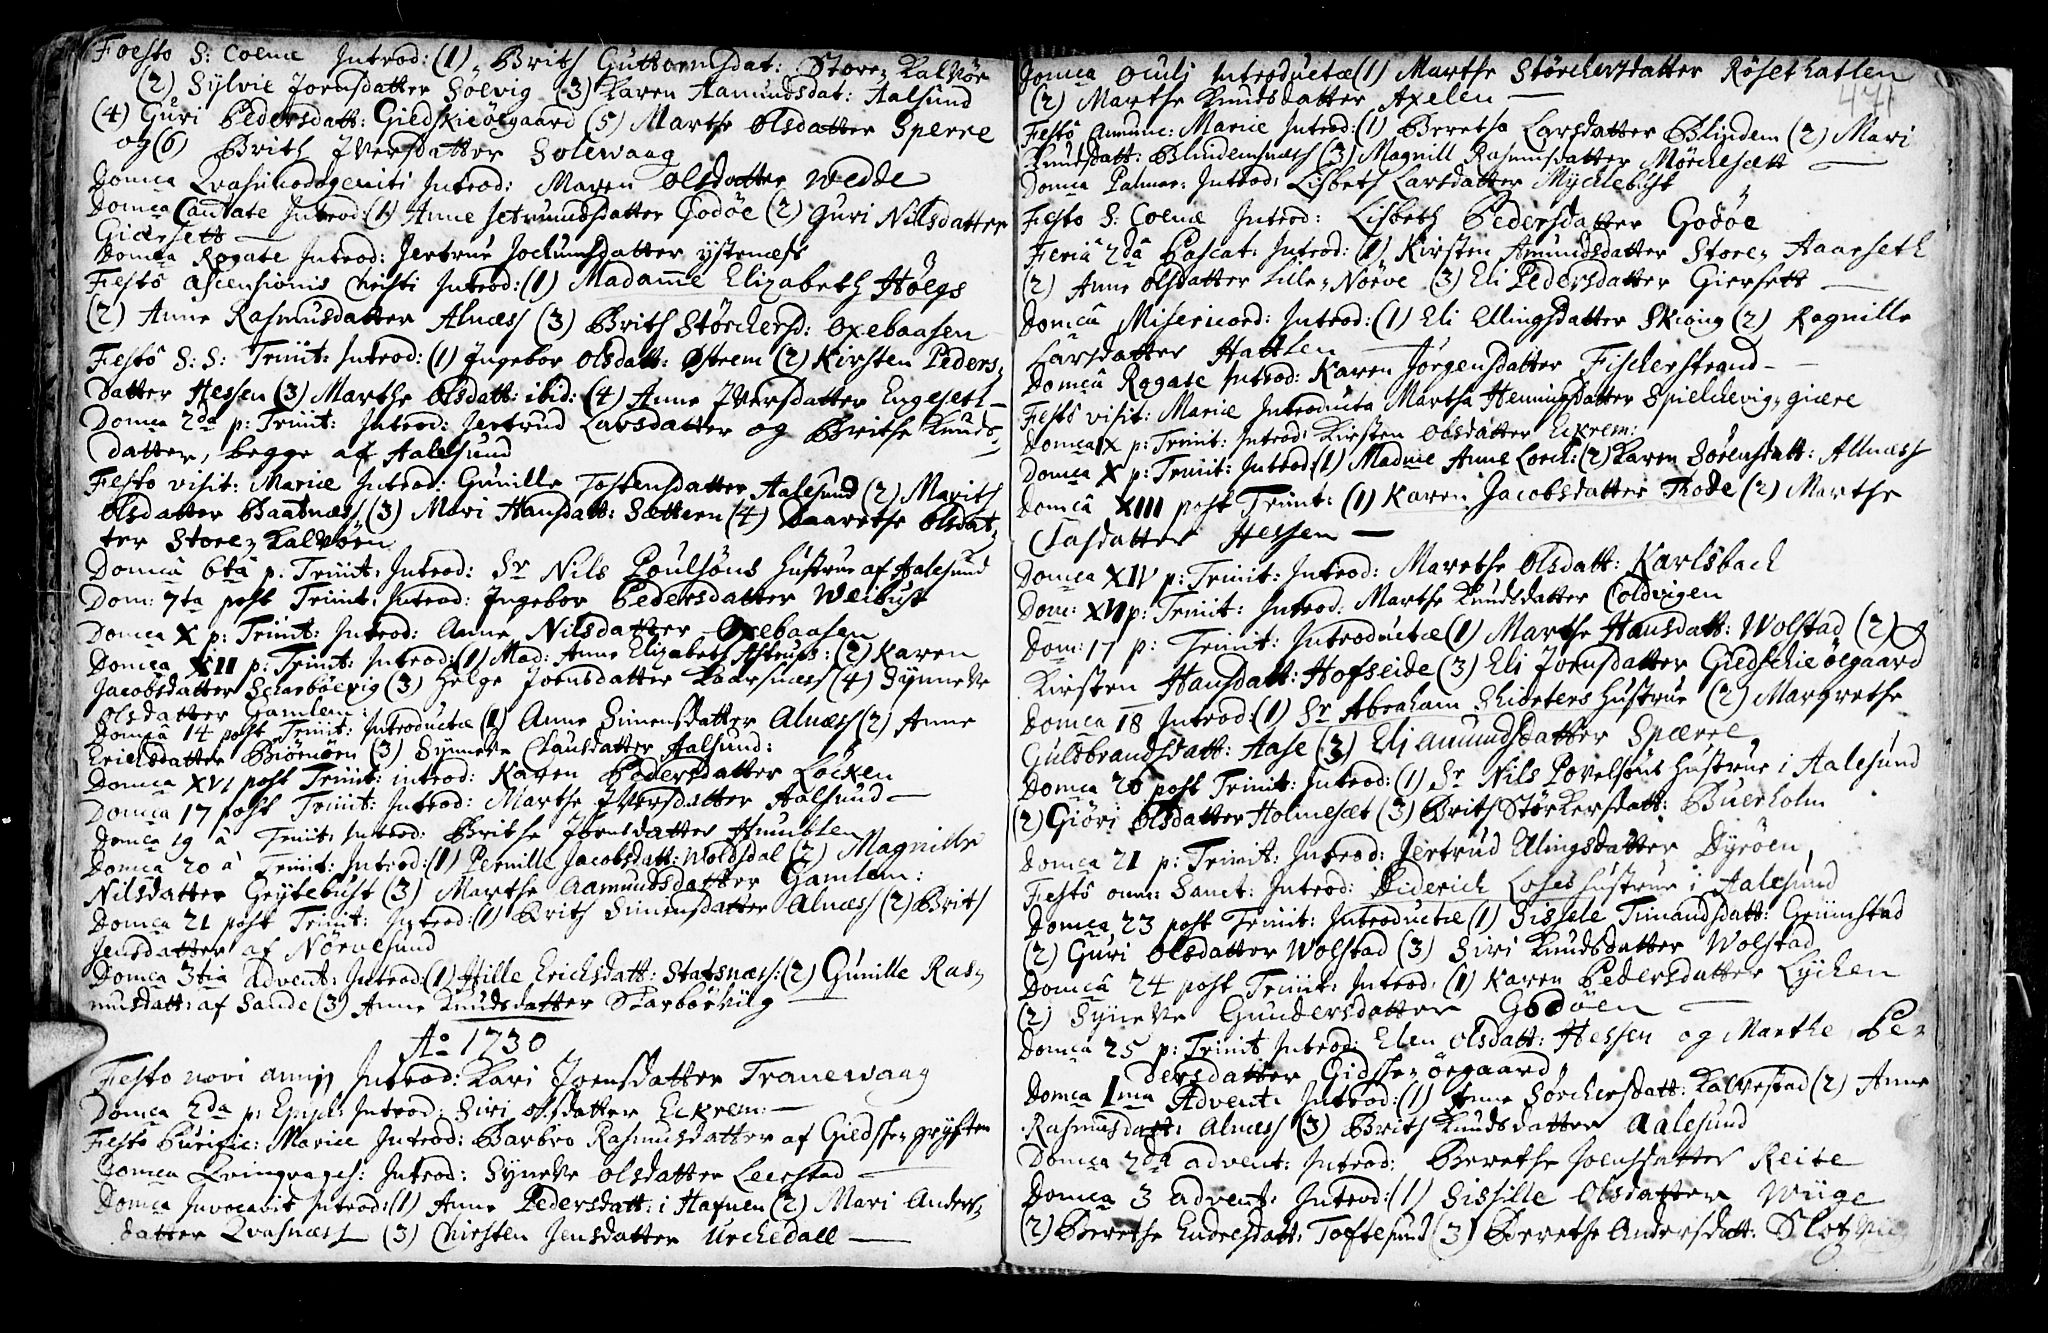 Festo S: Coenæ Introd: (1) Brith Guttormsdat: Store-Kalvøe
(2) Sylvie Joensdatter Soevig (3) Karen Aamundsdat: Aalsund
(4) Guri Pedersdatt: Giedskieøegaard (5) Marthe Olsdatter Sperre
og (6) Brith Iversdatter Solewaag
Domca Qvasimodogeniti Introd: Maren Olsdatter Wedde
Domca Cantate Introd: (1) Anne Jetmundsdatter Godøe (2) Guri Nilsdatter
Giersett
Domca Rogate Introd: Jertrue Jochumsdatter ystenæss
Festo Ascensionis Christi Introd: (1) Madame Elizabeth Høegs
(2) Anne Rasmusdatter Alnæss (3) Brith Størchersd: Oxebaasen
Festo S: S: Trinit: Introd: (1) Ingebor Olsdatt: Østrem (2) Kirsten Peders-
datter Hessen (3) Marthe Olsdatt: ibid: (4) Anne Iversdatter Engeseth
Domca 2da p: Trinit: Introd: Jertrud Larsdatter og Brithe Knuds-
datter, begge af Aalesund
Festo visit: Mariæ Introd: Gunille Tostensdatter Aalesund (2) Marith
Olsdatter Baatnæss (3) Mari Hansdatt: Sættern (4) Baarethe Olsdat-
ter Store-Kalvøen
Domca 6ta p: Trinit: Introd: Sr Nils Poulsøns Hustrue af Aalesund
Dom: 7ta post Trinit: Introd: Ingebor Pedersdatter Weibust
Domca X p: Trinit: Introd: Anne Nilsdatter Oxebaasen
Domca XII p: Trinit: Introd: (1) Mad: Anne Elizabeth Astrups: (2) Karen
Jacobsdatter Scharbøevig (3) Helge Joensdatter Kaarsnæss (4) Synneve
Olsdatter Gamlem:
Domca 14 post Trinit: Introductæ (1) Anne Simensdatter Alnæss (2) Anne
Erichsdatter Biørnøen (3) Synneve Clausdatter Aalsund:
Domca XVI post Trinit: introd: Karen Pedersdatter Løcken
Domca 17 post Trinit: Introd: Marthe Iversdatter Aalsund
Domca 19 a Trinit: Introd: Brithe Joensdatter Humblen
Domca 20 a Trinit: Introd: (1) Pernille Jacobsdatt: Woldsdal (2) Magnille
Nilsdatter Grytebust (3) Marthe Aamundsdatter Gamlem:
Domca 21 post Trinit: Introd: (1) Brith Simensdatter Alnæss (2) Brith
Jensdatter af Nørvesund
Domca 3tia Advent: Introd: (1) Hille Erichsdatt: Statsnæss: (2) Gunille Ras-
musdatt: af Sande (3) Anne Knudsdatter Skarbøevig
Ao 1730
Festo novi anni Introd: Kari Joensdatter Tranewaag
Domca 2da p: Epiph: Introd: Siri Olsdatter Eckrem:
Festo Purific: Mariæ Introd: Barbro Rasmusdatter af Giedske-
Domca Introd: Syneve Olsdatter Leerstad
Domca Invocavit Introd: (1) Anne Pedersdatt: i Hafnen (2) Mari Anders-
datter Qvasnæss (3) Chirsten Jensdatter Urchedall
471
Domca Oculi Introductæ (1) Marthe Størchersdatter Røsethatlen
(2) Marthe Knudsdatter Axelen
Festo Anunc: Mariæ Introd: (1) Berethe Larsdatter Blindem (2) Mari
Knudsdatt: Blindemsnæss (3) Magnill Rasmusdatter Mørchesætt
Domca Palmar: Introd: Lisbeth Larsdatter Mychlebust
Festo S: Coenæ Introd: Lisbeth Pedersdatter Godøe
Feria 2da Pascat: Introd: (1) Kirsten Amundsdatter Store-Aarseth
(2) Anne Olsdatter Lille-Nørve (3) Eli Pedersdatter Giersett
Domca Misericord: Introd: (1) Eli Ellingsdatter Skiong (2) Ragnille
Larsdatter Hattlen
Domca Rogate Introd: Karen Jørgensdatter Fischerstrand
Festo visit: Mariæ Introducta Martha Henningsdatter Spielchevig-giere
Domca IX p: Trinit: Introd: Kirsten Olsdatter Eckrem:
Domca X p: Trinit: Introd: (1) Madme Anne Lorck: (2) Karen Sørensdatt: Allnæss
Domca XIII post Trinit: (1) Karen Jacobsdatter Thode (2) Marthe
Clasdatter Hessen
Domca XIV p: Trinit: Introd: Marethe Olsdatt: Karlsbach
Dom: XVI p: Trinit: Introd: Marthe Knudsdatter Coldvigen
Dom: 17 p: Trinit: Introductæ (1) Marthe Hansdatt: Wolstad (2)
Kirsten Hansdatt: Hofseide (3) Eli Joensdatter Giedschieøegaard
Domca 18 Introd: (1) Sr Abraham Hustrue (2) Margrethe
Guldbrandsdatt: Aase (3) Eli Amundsdatter Spærre
Domca 20 post Trinit: Introd: (1) Sr Nils Povelsøns Hustrue i Aalesund
(2) Giøri Olsdatter Holmesæt (3) Brith Størkersdatt: Buerholm
Domca 21 p: Trinit: Introd: Jertrud Ellingsdatter Dyrøen
Festo omn: Sanct: Introd: Diderich Loses Hustrue i Aalesund
Domca 23 post Trinit: Introductæ (1) Sissele Timandsdatt: Grimstad
(2) Guri Olsdatter Wolstad (3) Siri Knudsdatter Wolstad
Domca 24 post Trinit: Introd: (1) Karen Pedersdatter Lychen
(2) Syneve Gundersdatter Godøen
Domca 25 p: Trinit Introd: Elen Olsdatt: Hessen og Marthe Pe-
dersdatter Gidske-øegaard
Domca 1ma Advent: Introd: (1) Anne Sørchersdatt: Kalvestad (2) Anne
Rasmusdatt: Alnæss (3) Brith Knudsdatter Aalesund
Domca 2da advent: Introd: Berethe Joensdatter Reite
Domca 3 advent: Introd: (1) Sissille Olsdatter Wiige
(2) Berethe Endresdatt: Toftesund (3) Berethe Andersdatt: